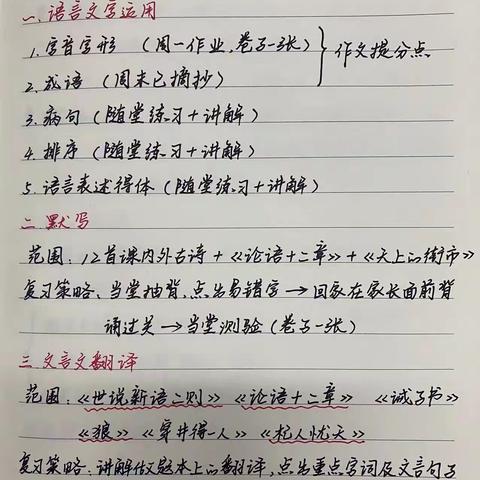 一、语言文字运用
1. 字音字形 (周一作业,卷子一张) } 作文提分点
2. 成语 (周末已摘抄)
3. 病句 (随堂练习+讲解)
4. 排序 (随堂练习+讲解)
5. 语言表述得体 (随堂练习+讲解)
二. 默写
范围: 12首课内外古诗 + 《论语十二章》+《天上的街市》
复习策略、当堂抽背,点出易错字→回家在家长面前背
诵过关→当堂测验(卷子一张)
三. 文言文翻译
范围:《世说新语二则》《论语十二章》《诫子书》
《狼》《穿井得一人》《杞人忧天》
复习策略:讲解做题本上的翻译,点出重点字词及文言句子